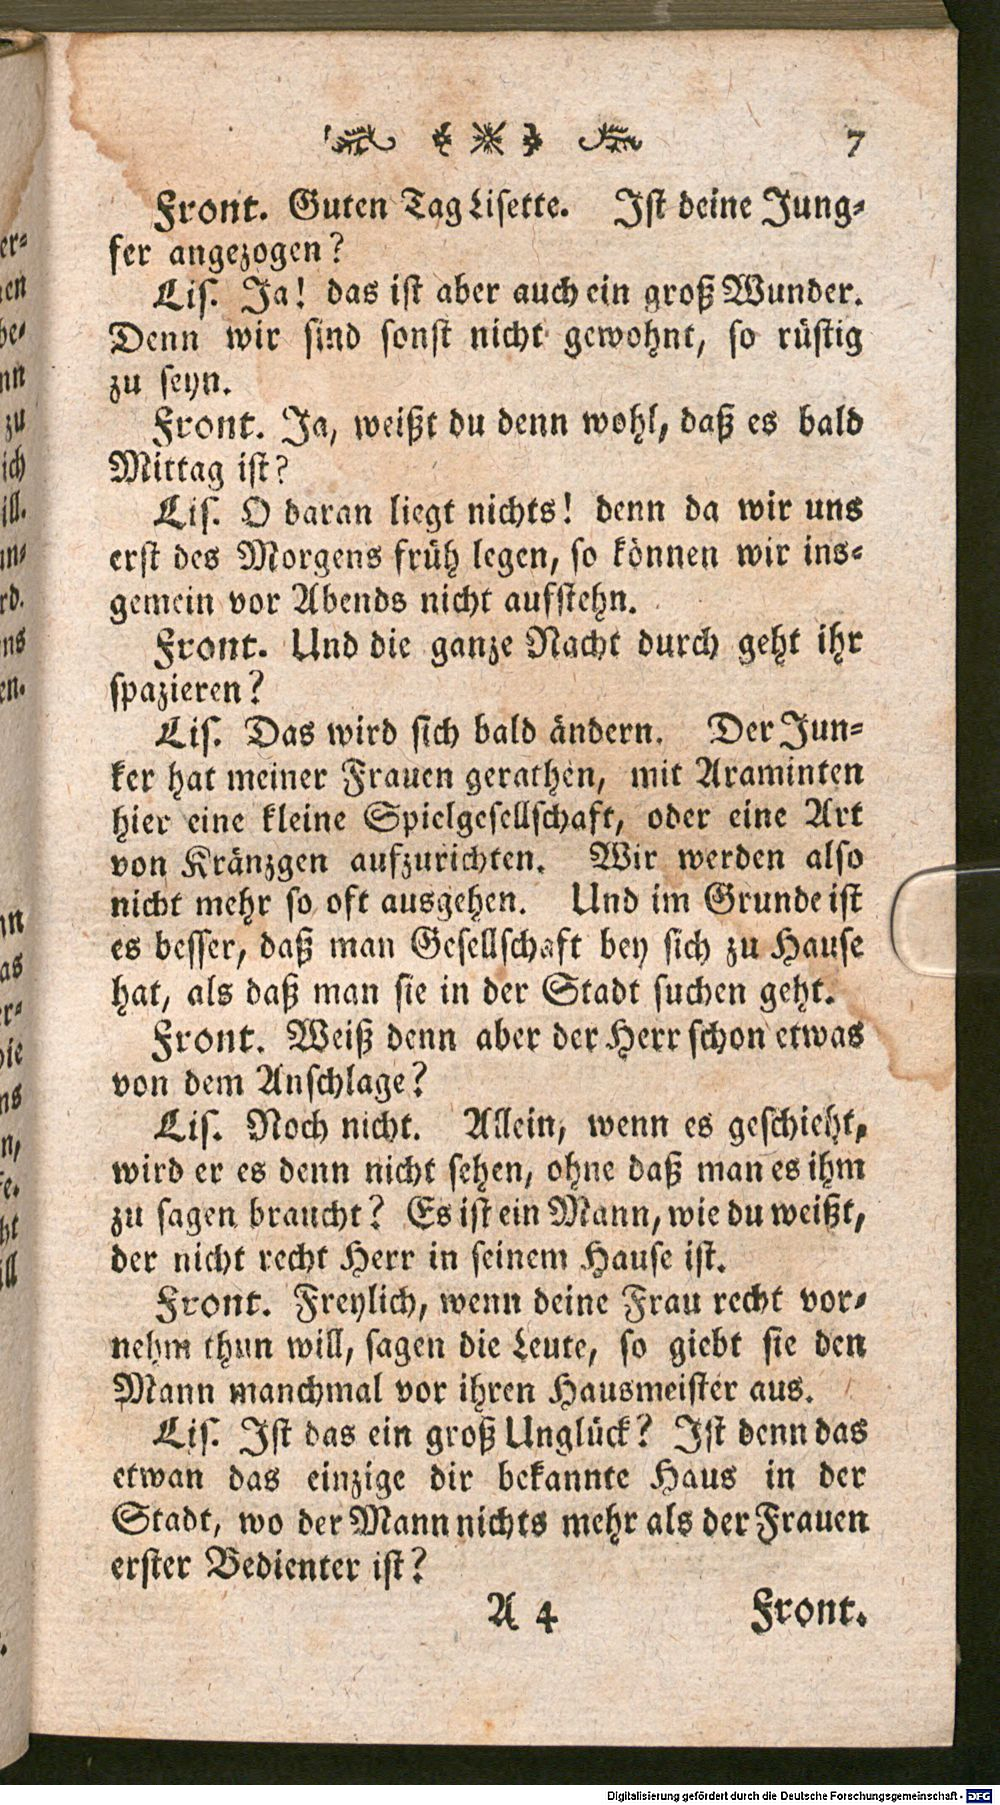 7
Front. Guten Tag Lisette. Ist deine Jung-
fer angezogen?
Lis. Ja! das ist aber auch ein groß Wunder.
Denn wir sind sonst nicht gewohnt, so rüstig
zu seyn.
Front. Ja, weißt du denn wohl, daß es bald
Mittag ist?
Lis. O daran liegt nichts! denn da wir uns
erst des Morgens früh legen, so können wir ins-
gemein vor Abends nicht aufstehn.
Front. Und die ganze Nacht durch geht ihr
spazieren?
Lis. Das wird sich bald ändern. Der Jun-
ker hat meiner Frauen gerathen, mit Araminten
hier eine kleine Spielgesellschaft, oder eine Art
von Kränzgen aufzurichten. Wir werden also
nicht mehr so oft ausgehen. Und im Grunde ist
es besser, daß man Gesellschaft bey sich zu Hause
hat, als daß man sie in der Stadt suchen geht.
Front. Weiß denn aber der Herr schon etwas
von dem Anschlage?
Lis. Noch nicht. Allein, wenn es geschieht,
wird er es denn nicht sehen, ohne daß man es ihm
zu sagen braucht? Es ist ein Mann, wie du weißt,
der nicht recht Herr in seinem Hause ist.
Front. Freylich, wenn deine Frau recht vor-
nehm thun will, sagen die Leute, so giebt sie den
Mann manchmal vor ihren Hausmeister aus.
Lis. Ist das ein groß Unglück? Ist denn das
etwan das einzige dir bekannte Haus in der
Stadt, wo der Mann nichts mehr als der Frauen
erster Bedienter ist?
A 4 Front.
Digitalisierung gefördert durch die Deutsche Forschungsgemeinschaft - DFG